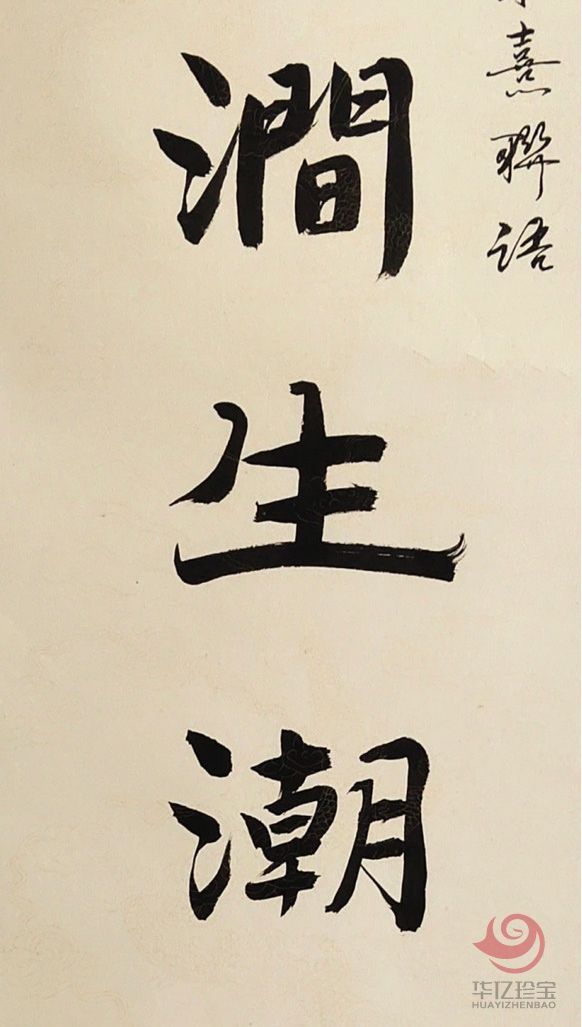 熹聯語
澗生潮
华亿珍宝
HUAYIZHENBAO